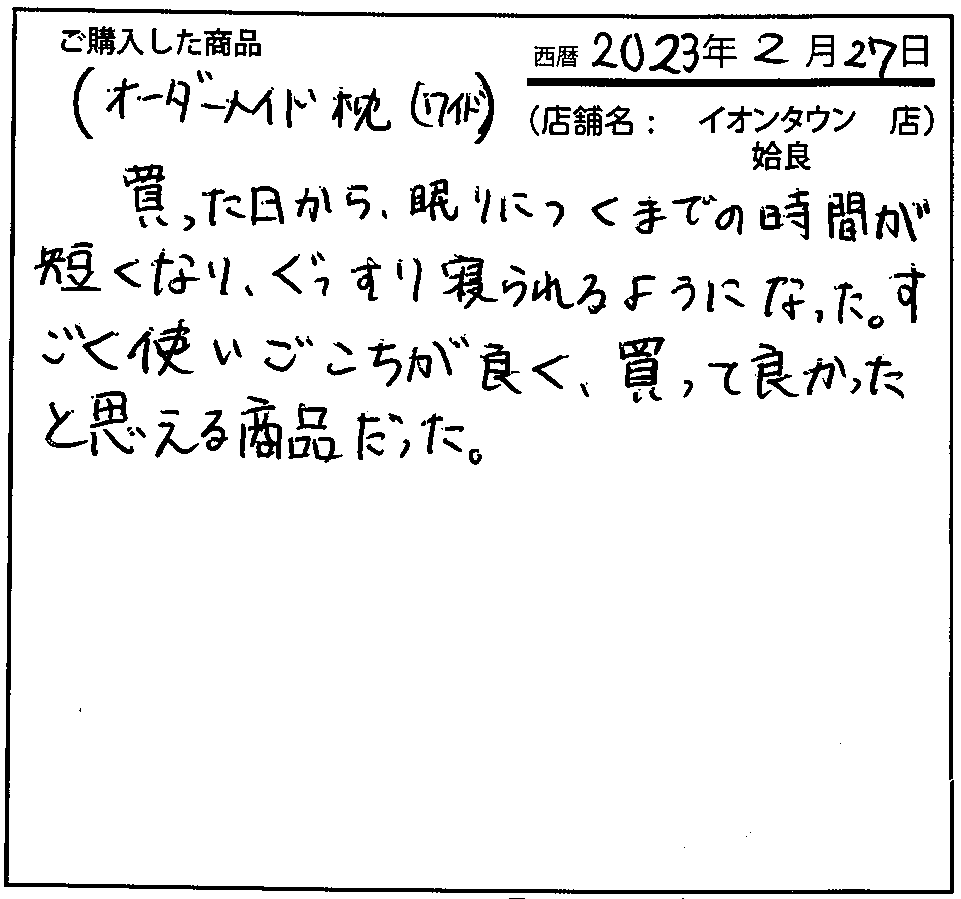 ご購入した商品
西暦 2023年 2月27日
(オーダーメイド枕(ワイド))
(店舗名: イオンタウン 店)
姶良
買った日から、眠りにつくまでの時間が
短くなり、ぐっすり寝られるようになった。す
ごく使いごこちが良く、買って良かった
と思える商品だった。